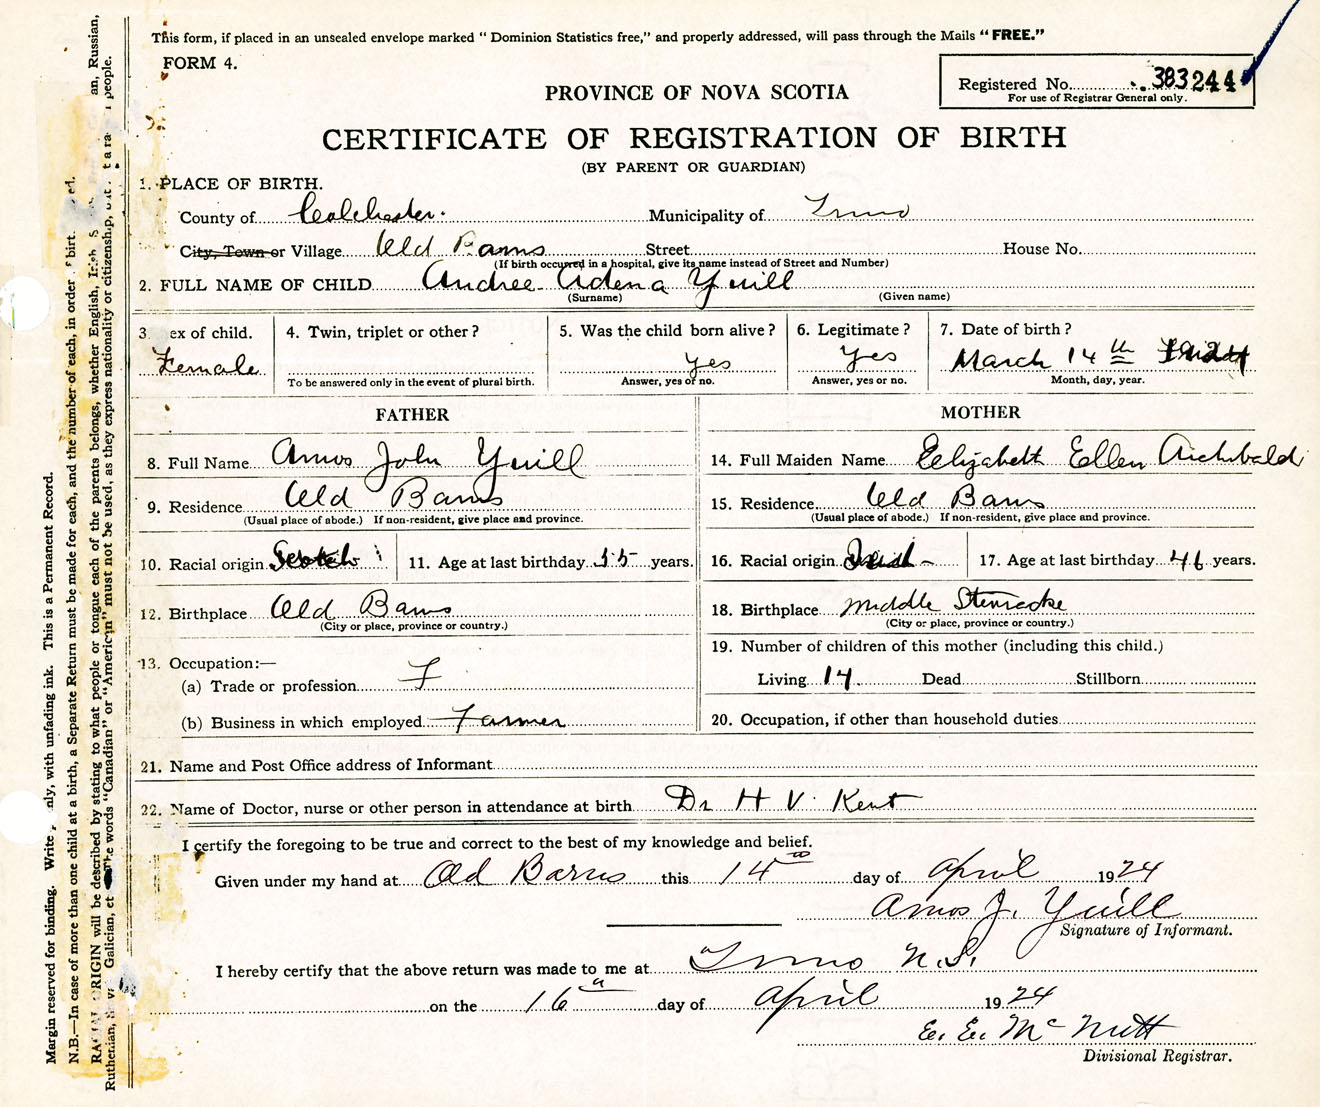 This form, if placed in an unsealed envelope marked "Dominion Statistics free," and properly addressed, will pass through the Mails "FREE."
FORM 4.
Registered No. 383244
For use of Registrar General only.
PROVINCE OF NOVA SCOTIA
CERTIFICATE OF REGISTRATION OF BIRTH
(BY PARENT OR GUARDIAN)
1. PLACE OF BIRTH.
County of Colchester. Municipality of Truro
City, Town or Village Old Barns Street House No.
(If birth occurred in a hospital, give its name instead of Street and Number)
2. FULL NAME OF CHILD Andree Adena Yuill
(Surname) (Given name)
3. ex of child. 4. Twin, triplet or other? 5. Was the child born alive? 6. Legitimate? 7. Date of birth?
Female yes Yes March 14th 1924
To be answered only in the event of plural birth. Answer, yes or no. Answer, yes or no. Month, day, year.
FATHER MOTHER
8. Full Name Amos John Yuill 14. Full Maiden Name Elizabeth Ellen Archibald
9. Residence Old Barns 15. Residence Old Barns
(Usual place of abode.) If non-resident, give place and province. (Usual place of abode.) If non-resident, give place and province.
10. Racial origin Scotch 11. Age at last birthday 55 years. 16. Racial origin Irish 17. Age at last birthday 46 years.
12. Birthplace Old Barns 18. Birthplace Middle Stewiacke
(City or place, province or country.) (City or place, province or country.)
19. Number of children of this mother (including this child.)
13. Occupation:—
(a) Trade or profession F Living 14 Dead Stillborn
(b) Business in which employed Farmer 20. Occupation, if other than household duties
21. Name and Post Office address of Informant
22. Name of Doctor, nurse or other person in attendance at birth Dr H V. Kent
I certify the foregoing to be true and correct to the best of my knowledge and belief.
Given under my hand at Old Barns this 14th day of April 1924
Amos J. Yuill
Signature of Informant.
I hereby certify that the above return was made to me at Truro N.S.
on the 16th day of April 1924
E. E. McNutt
Divisional Registrar.
Margin reserved for binding. Write nly, with unfading ink. This is a Permanent Record.
N.B.—In case of more than one child at a birth, a Separate Return must be made for each, and the number of each, in order f birt ed.
RACIAL ORIGIN will be described by stating to what people or tongue each of the parents belongs, whether English, Irish, S an, Russian,
Ruthenian, Galician, et he words "Canadian" or "American" must not be used, as they express nationality or citizenship, people.